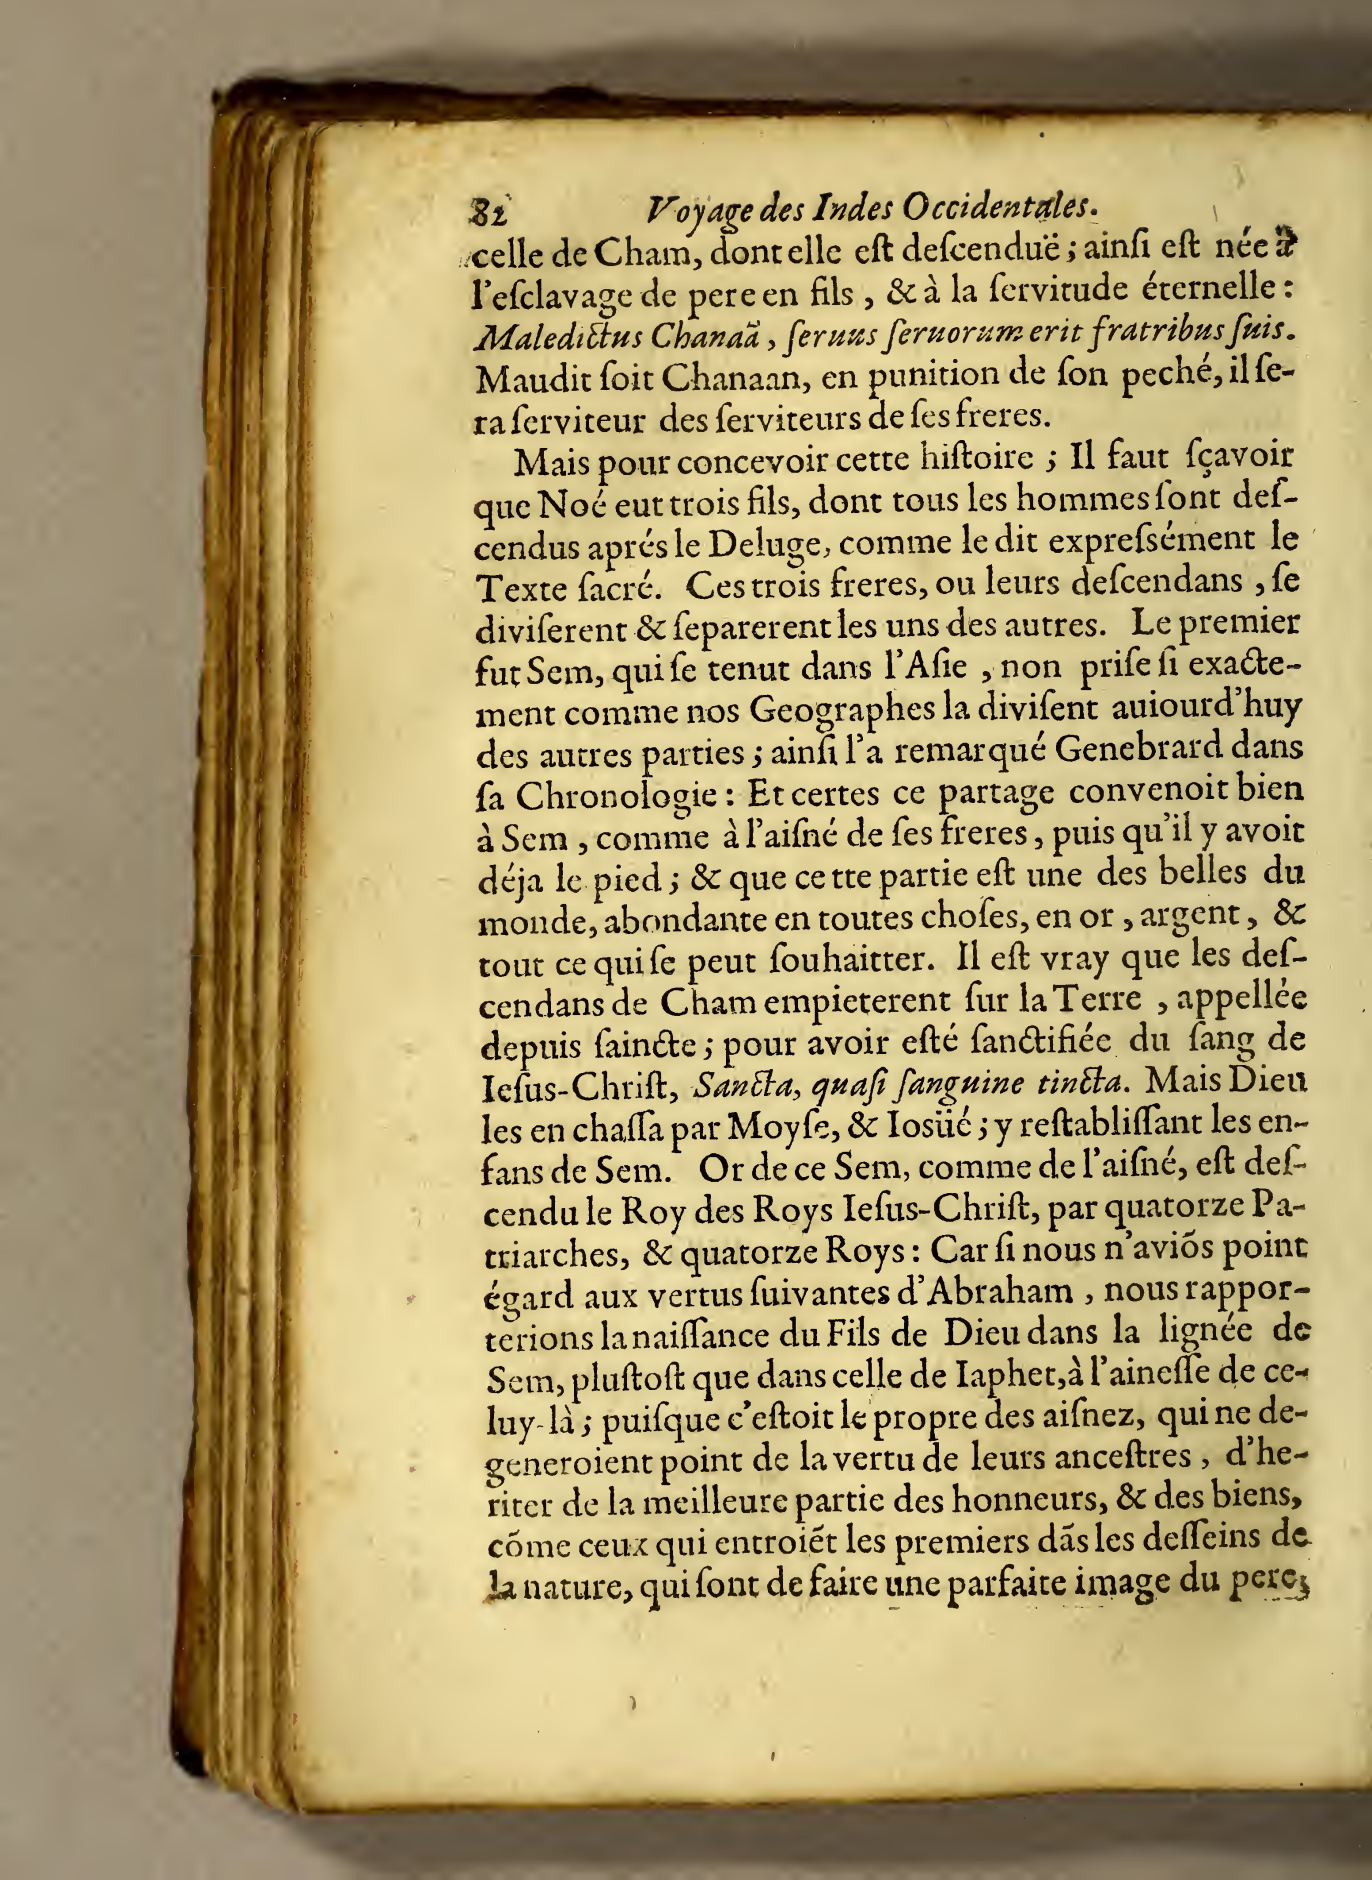 82 Voyage des Indes Occidentales.
celle de Cham, dont elle eſt deſcenduë ; ainſi eſt née à
l'eſclavage de pere en fils , & à la ſervitude éternelle :
Maledictus Chanaã , ſeruus ſeruorum erit fratribus ſuis.
Maudit ſoit Chanaan, en punition de ſon peché, il ſe-
ra ſerviteur des ſerviteurs de ſes freres.
Mais pour concevoir cette hiſtoire ; Il faut ſçavoir
que Noé eut trois fils, dont tous les hommes ſont deſ-
cendus aprés le Deluge, comme le dit expreſsément le
Texte ſacré. Ces trois freres, ou leurs deſcendans , ſe
diviſerent & ſeparerent les uns des autres. Le premier
fut Sem, qui ſe tenut dans l'Aſie , non priſe ſi exacte-
ment comme nos Geographes la diviſent auiourd'huy
des autres parties ; ainſi l'a remarqué Genebrard dans
ſa Chronologie : Et certes ce partage convenoit bien
à Sem , comme à l'aiſné de ſes freres , puis qu'il y avoit
déja le pied ; & que cette partie eſt une des belles du
monde, abondante en toutes choſes, en or , argent , &
tout ce qui ſe peut ſouhaitter. Il eſt vray que les deſ-
cendans de Cham empieterent ſur la Terre , appellée
depuis ſaincte ; pour avoir eſté ſanctifiée du ſang de
Ieſus-Chriſt, Sancta, quaſi ſanguine tincta. Mais Dieu
les en chaſſa par Moyſe, & Ioſüé ; y reſtabliſſant les en-
fans de Sem. Or de ce Sem, comme de l'aiſné, eſt deſ-
cendu le Roy des Roys Ieſus-Chriſt, par quatorze Pa-
triarches, & quatorze Roys : Car ſi nous n'aviõs point
égard aux vertus ſuivantes d'Abraham , nous rappor-
terions la naiſſance du Fils de Dieu dans la lignée de
Sem, pluſtoſt que dans celle de Iaphet, à l'aineſſe de ce-
luy-là ; puiſque c'eſtoit le propre des aiſnez, qui ne de-
generoient point de la vertu de leurs anceſtres , d'he-
riter de la meilleure partie des honneurs, & des biens,
cõme ceux qui entroiẽt les premiers dãs les deſſeins de
la nature, qui ſont de faire une parfaite image du pere;